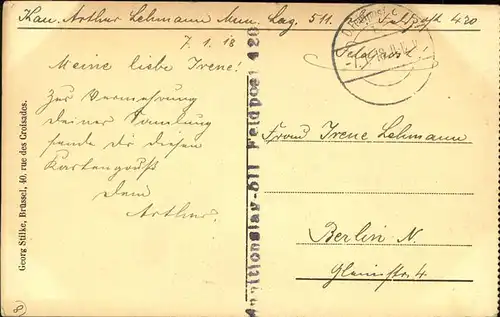 Kan. Arthur Lehmann Mun. Lag. 511. Feldpost 420
7.1.18
Feldpost
Meine liebe Irene!
Zur Vermehrung
deiner Samlung
sende dir diesen
Kartengruß
Dein
Arthur.
Georg Stilke, Brüssel, 40, rue des Croisades.
Munitionslag. 511 Feldpost 420
Frau Irene Lehmann
Berlin N.
Gleimstr. 4.
8